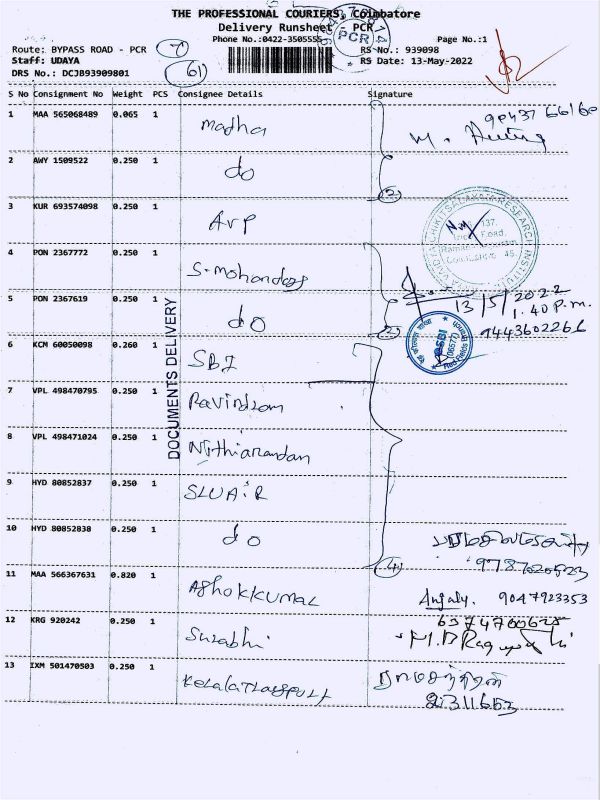 THE PROFESSIONAL COURIERS, Coimbatore
Delivery Runsheet - PCR
Phone No.:0422-3505555
Page No.:1
Route: BYPASS ROAD - PCR
7
RS No.: 939098
Staff: UDAYA
61
RS Date: 13-May-2022
DRS No.: DCJB93909801
PCR
S No Consignment No Weight PCS Consignee Details Signature
1 MAA 565068489 0.065 1 madha
2 AWY 1509522 0.250 1 do
2
3 KUR 693574098 0.250 1 AVP
137,
4 PON 2367772 0.250 1 S. mohandoss
13/5/2022
1.40 P.m.
5 PON 2367619 0.250 1 do
2
9443602261
DOCUMENTS DELIVERY
6 KCM 60050098 0.260 1 SBI
SBI
7 VPL 498470795 0.250 1 Ravindram
8 VPL 498471024 0.250 1 Nithianandan
9 HYD 80852837 0.250 1 SLUAIR
10 HYD 80852838 0.250 1 do
4
11 MAA 566367631 0.820 1 Ashokkumar
Anjaly. 9047923353
12 KRG 920242 0.250 1 Surabhi
13 IXM 501470503 0.250 1